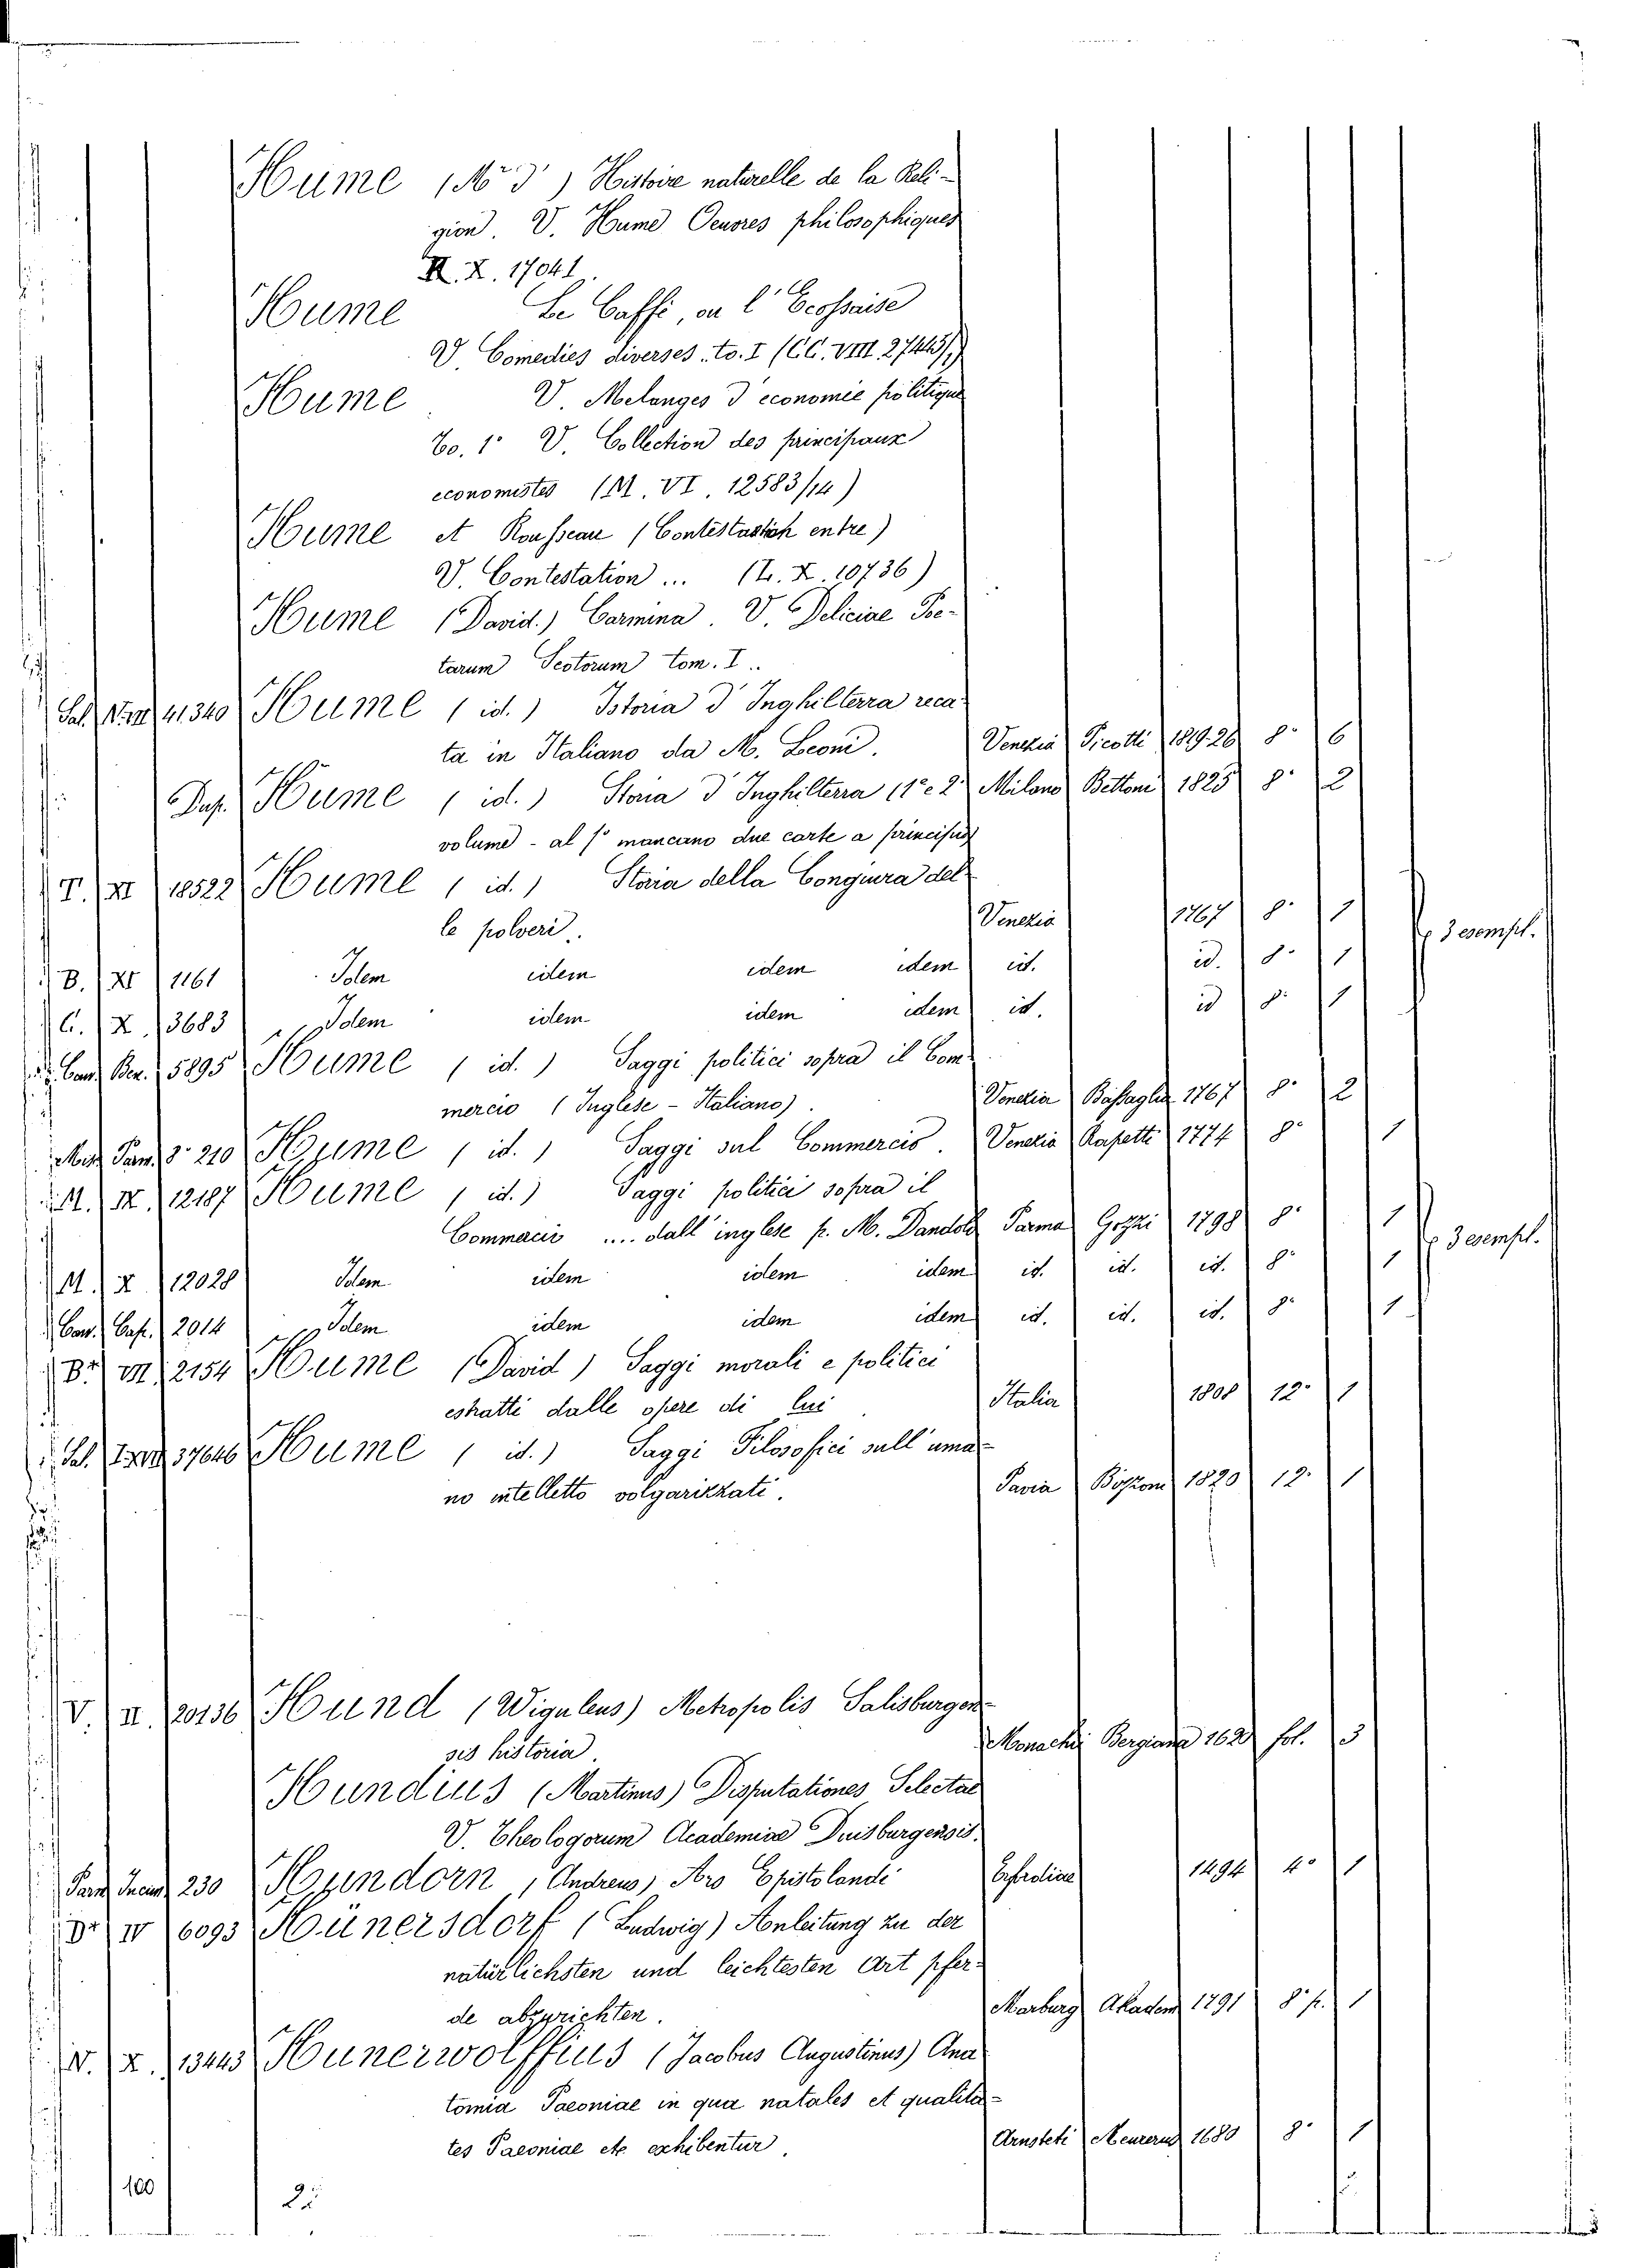 Hume (Mr D') Histoire naturelle de la Reli-
gion. V. Hume Oeuvres philosophiques
X. 17041.
Hume Le Caffé, ou l'Ecossaise
V. Comedies diverses. to. I (CC. VIII. 27443)
Hume V. Melanges d'economie politique
to. 1° V. Collection des principaux
economistes (M. VI. 12583/14)
Hume et Rousseau (Contestation entre)
V. Contestation ... (T. X. 10736)
Hume (David.) Carmina. V. Deliciae Poe-
tarum Scotorum tom. I..
41340 Hume (id.) Istoria d'Inghilterra reca-
ta in Italiano da M. Leoni. Venezia Picotti 1819-26 8° 6
Dup. Hume (id.) Storia d'Inghilterra (1° e 2° Milano Bettoni 1825 8° 2
volume - al 1° mancano due carte a principio
T. XI 18522 Hume (id.) Storia della Congiura del-
le polveri. Venezia 1767 8° 1 3 esempl.
B. XI 1161 Idem idem idem idem id. id. 8° 1
C. X. 3683 Idem idem idem idem id. id 8° 1
Can. Ben. 5895 Hume (id.) Saggi politici sopra il Com-
mercio (Inglese - Italiano). Venezia Bassaglia 1767 8° 2
210 Hume (id.) Saggi sul Commercio. Venezia Rapetti 1774 8° 1
M. IX. 12187 Hume (id.) Saggi politici sopra il
Commercio .... dall'inglese p. M. Dandolo Parma Gozzi 1798 8° 1 3 esempl.
M. X 12028 Idem idem idem idem id. id. id. 8° 1
Can. Cap. 2014 Idem idem idem idem id. id. id. 8° 1
Br VII 2154 Hume (David) Saggi morali e politici
estratti dalle opere di lui Italia 1808 12° 1
37646 Hume (id.) Saggi Filosofici sull'uma-
no intelletto volgarizzati. Pavia Bizzoni 1820 12° 1
V. II. 20136 Hund (Wiguleus) Metropolis Salisburgen-
sis historia. Monachii Bergiana 1620 fol. 3
Hundius (Martinus) Disputationes Selectae
V. Theologorum Academiae Duisburgensis.
230 Hundorn (Andreas) Ars Epistolandi Erfordiae 1494 4° 1
Br IV 6093 Hünersdorf (Ludwig) Anleitung zu der
natürlichsten und leichtesten Art pfer-
de abzurichten. Marburg Akadem 1791 8° p. 1
N. X. 13443 Hunerwolffius (Jacobus Augustinus) Ana
tomia Paeoniae in qua natales et qualita-
tes Paeoniae etc exhibentur. Arnsteti Meurerus 1680 8° 1
100